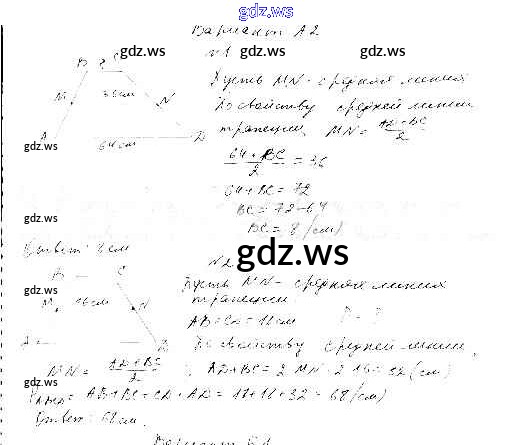 gdz.ws
Вариант А2
gdz.ws gdz.ws gdz.ws
№1
B ? C
Пусть MN - средняя линия
M 36см N
По свойству средней линии
A 64см D
трапеции, MN = (AD + BC)/2
gdz.ws
(64 + BC)/2 = 36
64 + BC = 72
BC = 72 - 64
gdz.ws
BC = 8 (см)
Ответ: 8см
gdz.ws
№2
B C
Пусть MN - средняя линия
gdz.ws
M 16см N
трапеции
AB = CD = 18см P - ?
A D
По свойству средней линии
MN = (AD + BC)/2 AD + BC = 2 MN = 2 · 16 = 32 (см)
gdz.ws
P = AB + BC + CD + AD = 18 + 18 + 32 = 68 (см)
Ответ: 68см
gdz.ws
Вариант